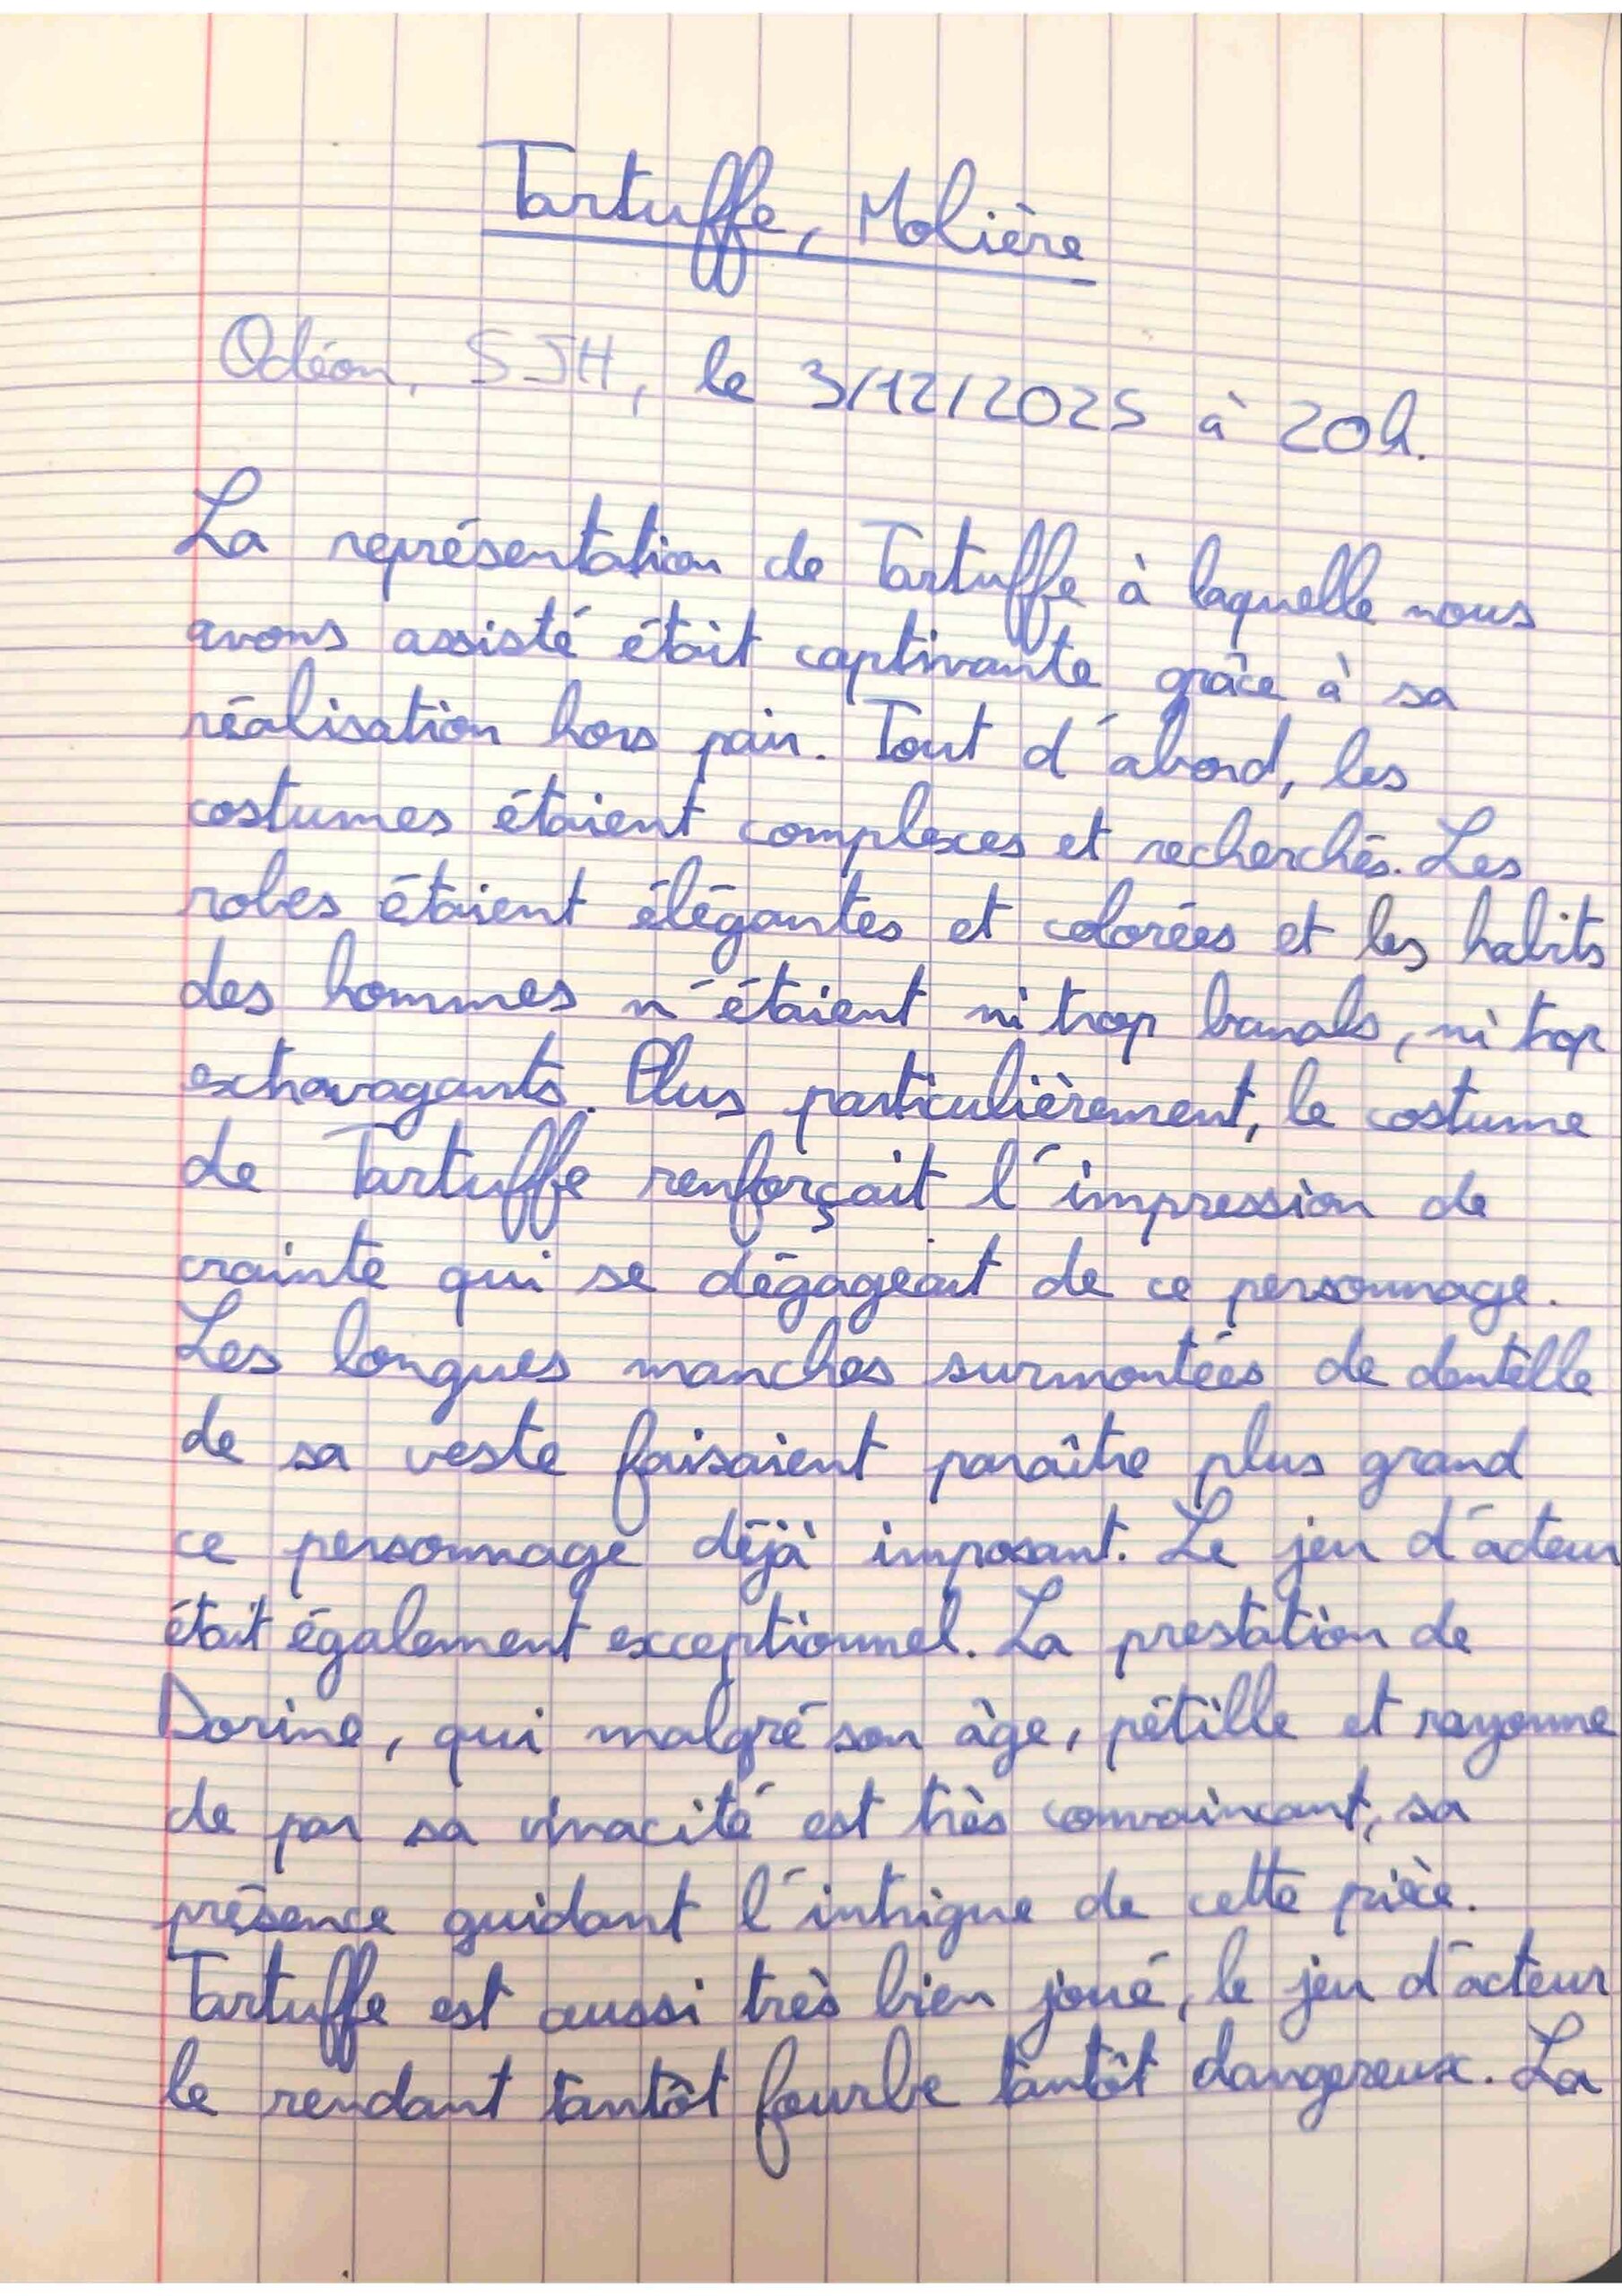 Tartuffe, Molière
Odéon, SJH, le 3/12/2025 à 20h.
La représentation de Tartuffe à laquelle nous
avons assisté était captivante grâce à sa
réalisation hors pair. Tout d'abord, les
costumes étaient complexes et recherchés. Les
robes étaient élégantes et colorées et les habits
des hommes n'étaient ni trop banals, ni trop
extravagants. Plus particulièrement, le costume
de Tartuffe renforçait l'impression de
crainte qui se dégageait de ce personnage.
Les longues manches surmontées de dentelle
de sa veste faisaient paraître plus grand
ce personnage déjà imposant. Le jeu d'acteur
était également exceptionnel. La prestation de
Dorine, qui malgré son âge, pétille et rayonne
de par sa vivacité est très convaincant, sa
présence guidant l'intrigue de cette pièce.
Tartuffe est aussi très bien joué, le jeu d'acteur
le rendant tantôt fourbe tantôt dangereux. La